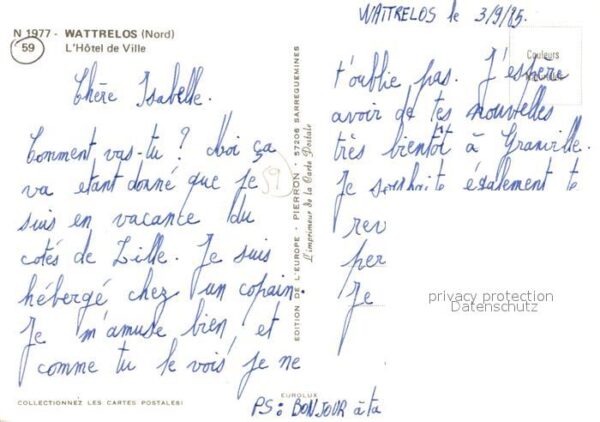 N 1977 - WATTRELOS (Nord)
59 L'Hôtel de Ville
Chère Isabelle.
Comment vas-tu ? Moi ça
va etant donné que je
suis en vacance du
cotés de Lille. Je suis
hébergé chez un copain.
Je m'amuse bien, et
comme tu le vois, je ne
COLLECTIONNEZ LES CARTES POSTALES!
59
EDITION DE L'EUROPE - PIERRON - 57206 SARREGUEMINES
L'imprimeur de la Carte Postale
EUROLUX
WATTRELOS le 3/9/85.
Couleurs
t'oublie pas. J'espère
avoir de tes nouvelles
très bientôt à Granville.
Je souhaite également te
rev
per
Je
privacy protection
Datenschutz
PS: BONJOUR à ta